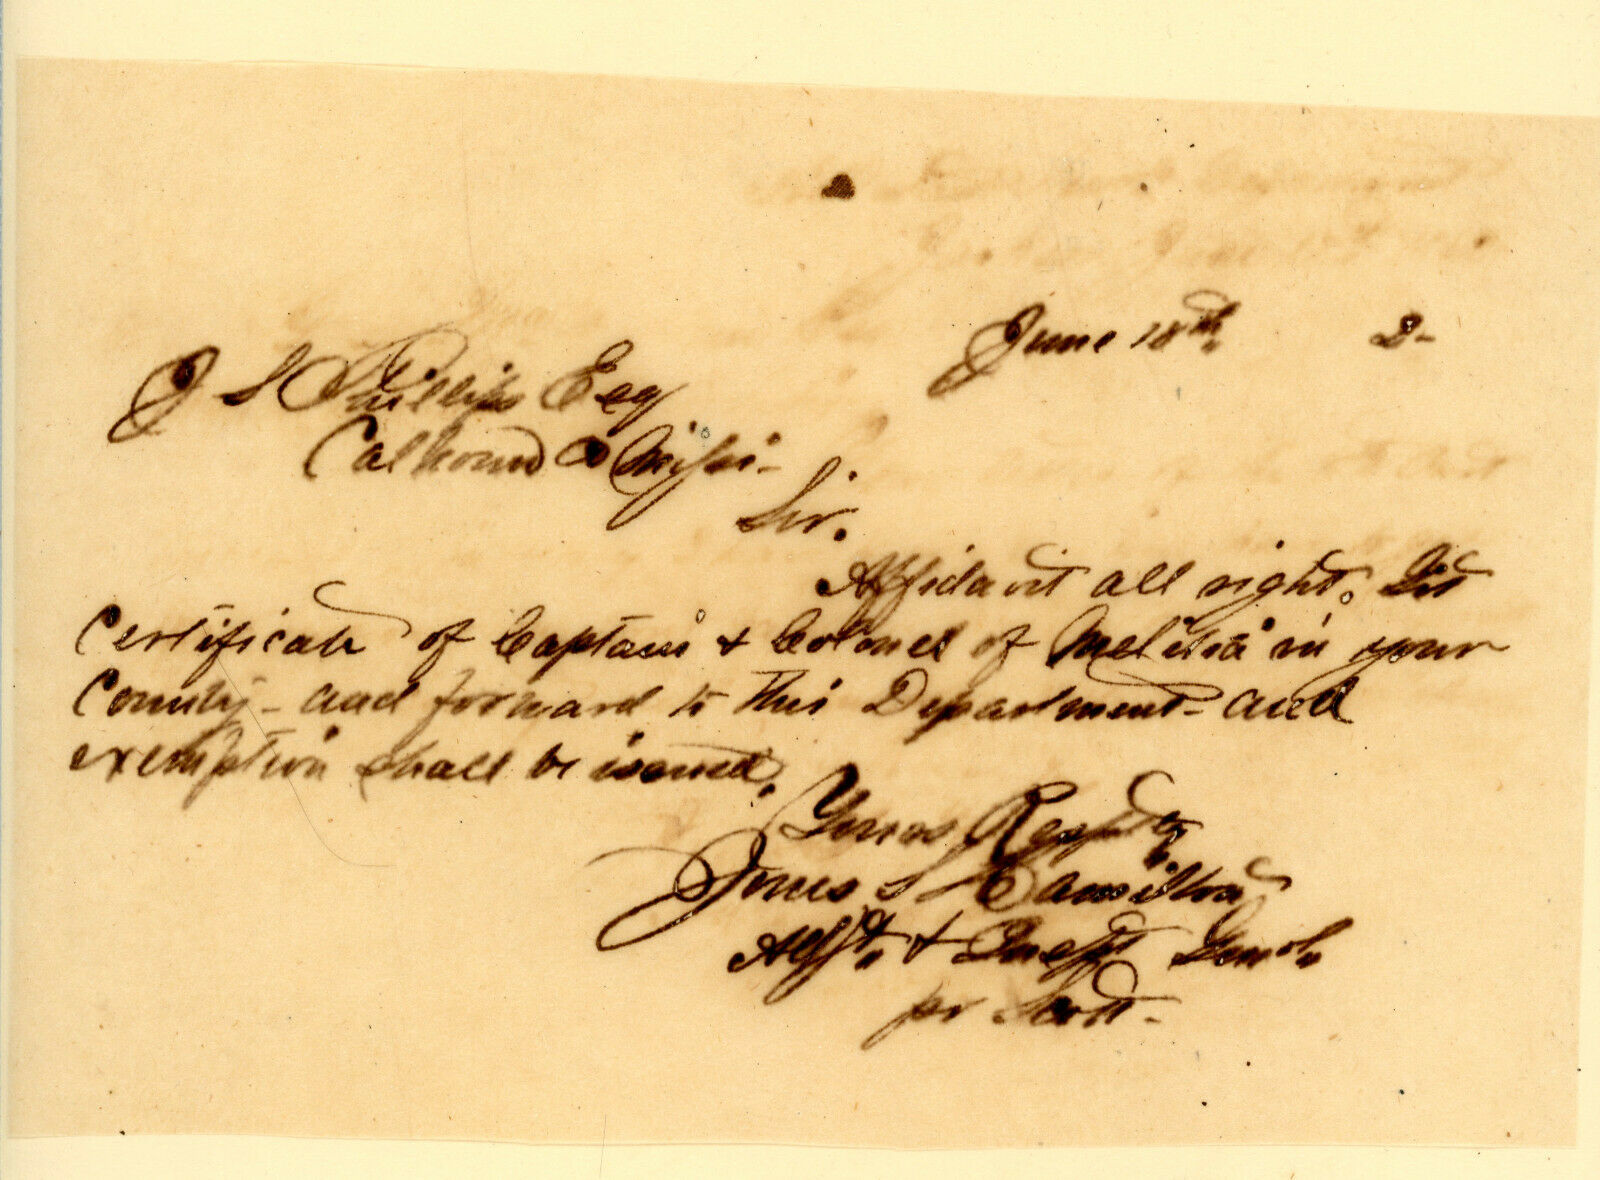 June 18th 2-
J S Phillips Esq
Calhoun Co Missi-
Sir.
Affidavit all right. Get
Certificate of Captain & Colonel of Melitia in your
County - and forward to this Department - and
exemption shall be issued.
Yours Respty
Jones S Hamilton
Adjt. & Inspt Genl.
pr Scott-